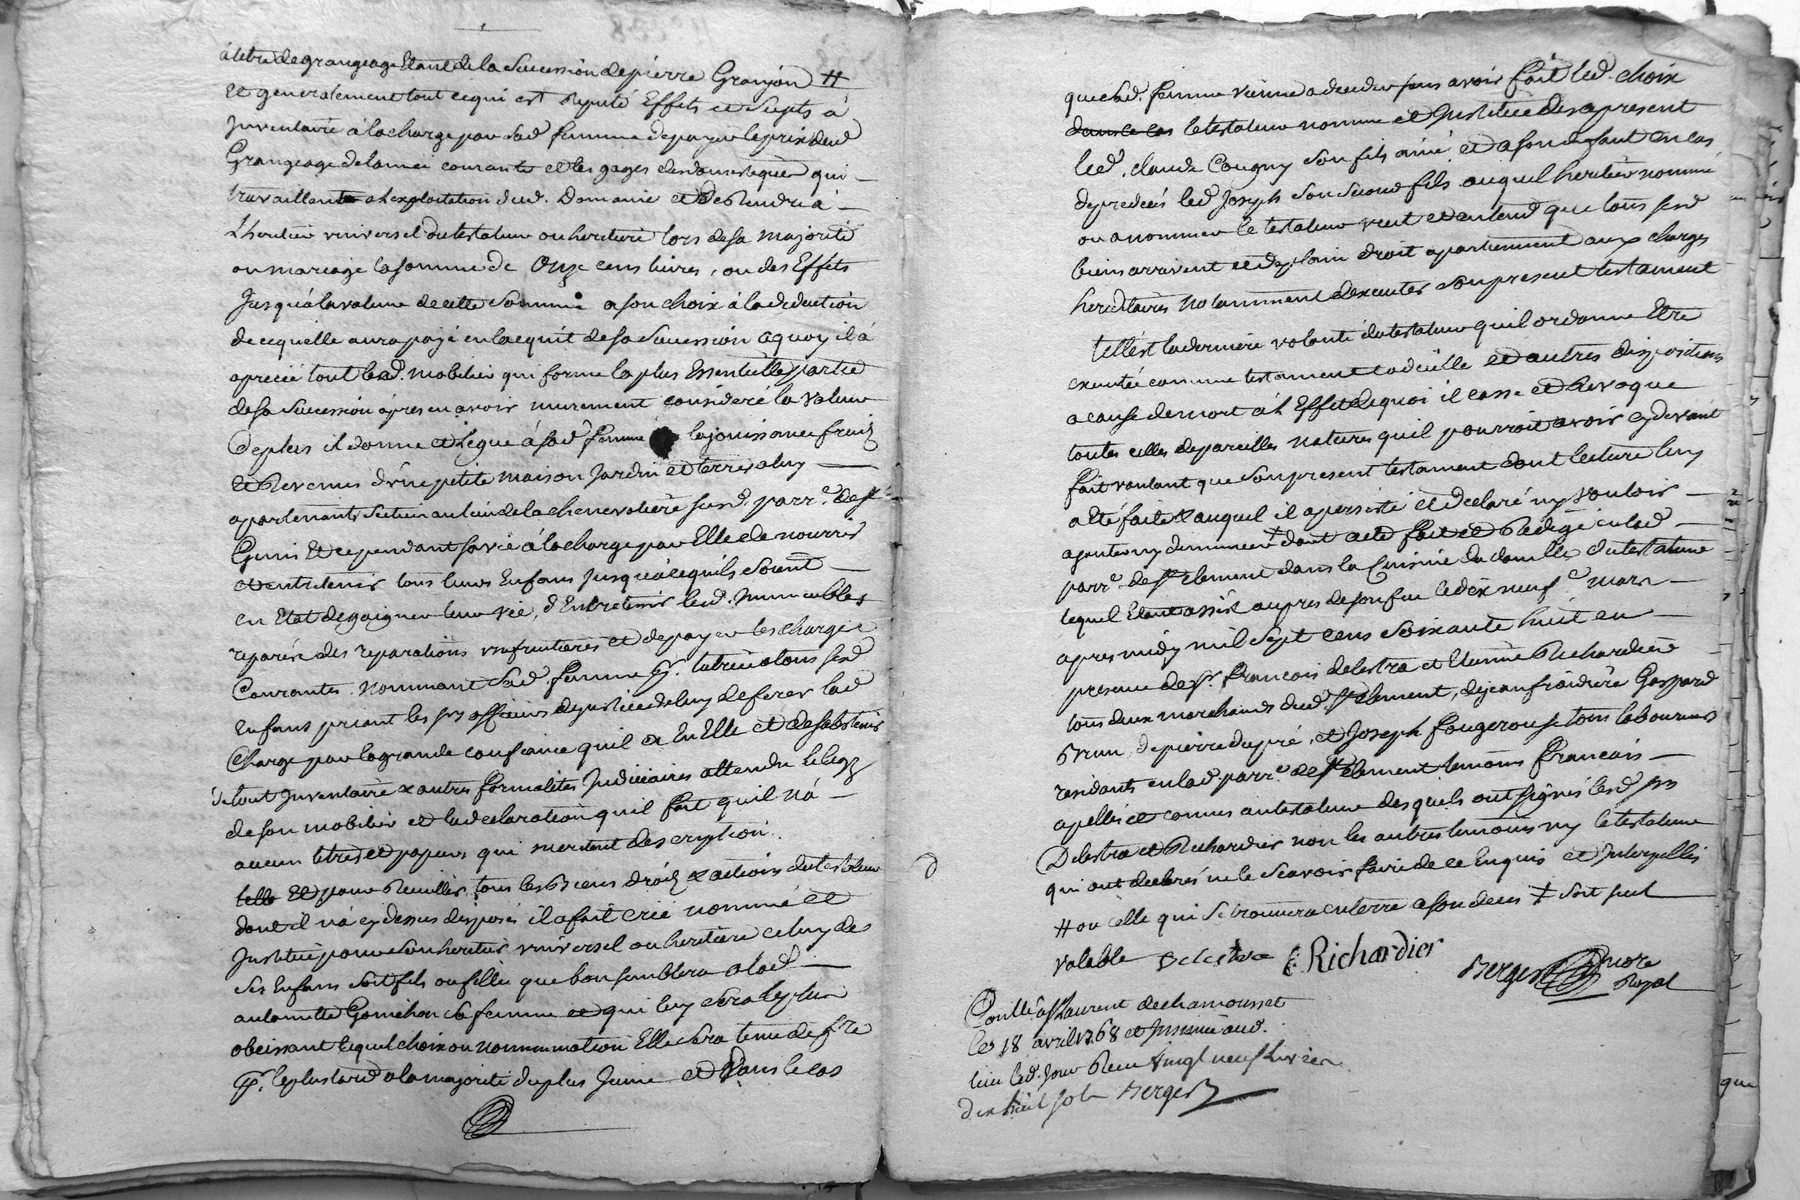 à tetre de grangeage Etant de la Succession de pierre Granjon #
et generalement tout ce qui est Reputé Effets et Sujets à
Inventaire à la charge par Sad. femme de payer le prix dud.
Grangeage de lannéé courante et les gages des domestiques qui
travaillent a lexploitation dud. Domaine et de Rendre à
L'heritier universel du testateur ou heritiere lors de sa majorité
ou mariage la somme de Onze cens livres, ou des Effets
Jusqu'a la valeur de cette Somme a son choix à la deduction
de ce quelle aura payé en lacquit de sa Succession a quoy il a
aprecié tout led. mobilier qui forme la plus Essentielle partie
de sa Succession apres en avoir murement consideré la valeur
De plus il donne et legue à sad. femme la jouissance fruits
et Revenus d'une petite maison Jardin et terres a luy
apartenants Scitués au lieu de la chenevotiere sur d. parr.e de
Genis Et ce pendant sa vie à la charge par Elle de nourrir
et entretenir tous leurs Enfans Jusqu'a ce quils Soient
en Etat de gaigner leur vie, d'Entretenir lesd. Immeubles
reparer des reparations usufruitieres et de payer les charges
Courantes. nommant Sad. femme tutrice a tous sesd.
Enfans priant les srs officiers de justice de luy deferer lad.
Charge par la grande confiance quil a En Elle et de sabstenir
de tout Inventaire & autres formalités Judiciaires attendu le legs
de son mobilier et la declaration quil fait quil nà
aucun titres et papiers qui meritent description.
Et pour Recuillir tous les Biens droits & actions du testateur
dont il nà cy dessus disposé il a fait créé nommé et
Institué pour Son heritier universel ou heritiere celuy de
Ses Enfans Soit fils ou fille que bon semblera a lad.
antoinette Gonichon Sa femme et qui luy Sera le plus
obeissant lequel choix ou nommination Elle Sera tenue de f.re
le plus tard a la majorité du plus Jeune et Dans le cas
que sad. femme vienne a deceder sans avoir fait led. choix
dans ce cas le testateur nomme et Institue des apresent
led. claude Cougny Son fils ainé et a son defaut en cas
de predeces led. Joseph Son Second fils auquel heritier nommé
ou a nommer le testateur veut et entend que tous sesd.
biens arrivent et de plain droit apartiennent aux charges
hereditaires notamment dexecuter Son present testament
telle est la derniere volonté du testateur quil ordonne Etre
executéé comme testament codicille et autres dispositions
a cause de mort a l'Effet de quoi il casse et Revoque
toutes celles de pareilles natures quil pourroit avoir cy devant
fait voulant que Son present testament dont lecture luy
a été faite & auquel il a persisté et declaré ny vouloir
ajouter ny diminuer ǂ dont acte fait et Redigé en lad.
parr.e de St Clement dans la Cuisine du domicille du testateur
lequel Etant assis aupres de son feu le dix neuf.e mars
apres midy mil Sept cens Soixante huit en
presence de Sr. francois delestra et Etienne Richardiere
tous deux marchands dud. St Clement, de jean froidiere Gaspard
Brun, de pierre dupré, et Joseph fougerouse tous laboureurs
residants en lad. parr.e de St Clement temoins francois
apellés et connus au testateur desquels ont signés lesd. srs
Delestra et Richardier non les autres temoins ny le testateur
qui ont declarés ne le Scavoir faire de ce Enquis et Interpellés
# ou celle qui Se trouvera en terre a son deces ǂ Soit seul
valable Delestra E. Richardier
Berger nore Royal
Conllé à St Laurent de chamousset
le 18 avril 1768 et Insinué aud.
lieu led. Jour Reçu vingt neuf livres
dix huit sols Berger